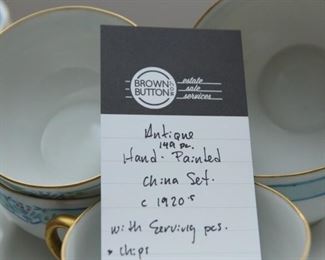 BROWN
BUTTON
.COM
estate
sale
services
Antique
149 pc.
Hand-Painted
China Set.
c 1920s
with Serving pcs.
* chips